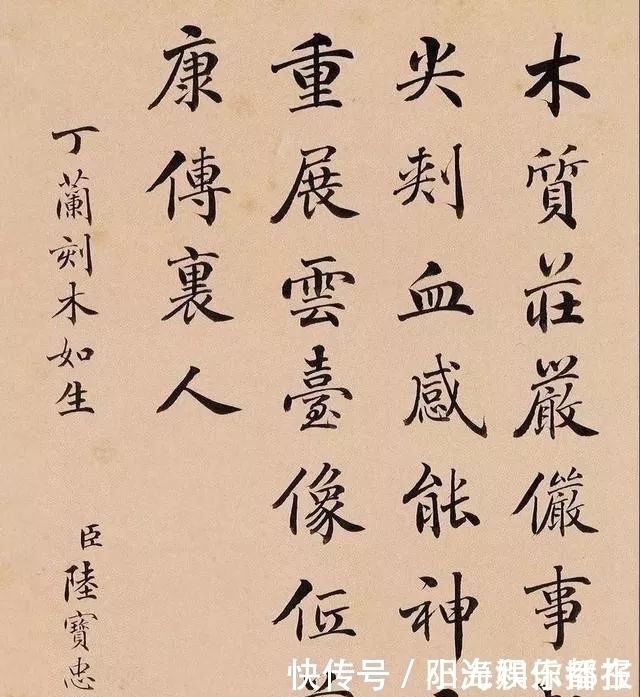 木質莊嚴儼事
尖刾血感能神
重展雲臺像
康傳裏人
丁蘭刻木如生
臣陸寶忠
快传号 /